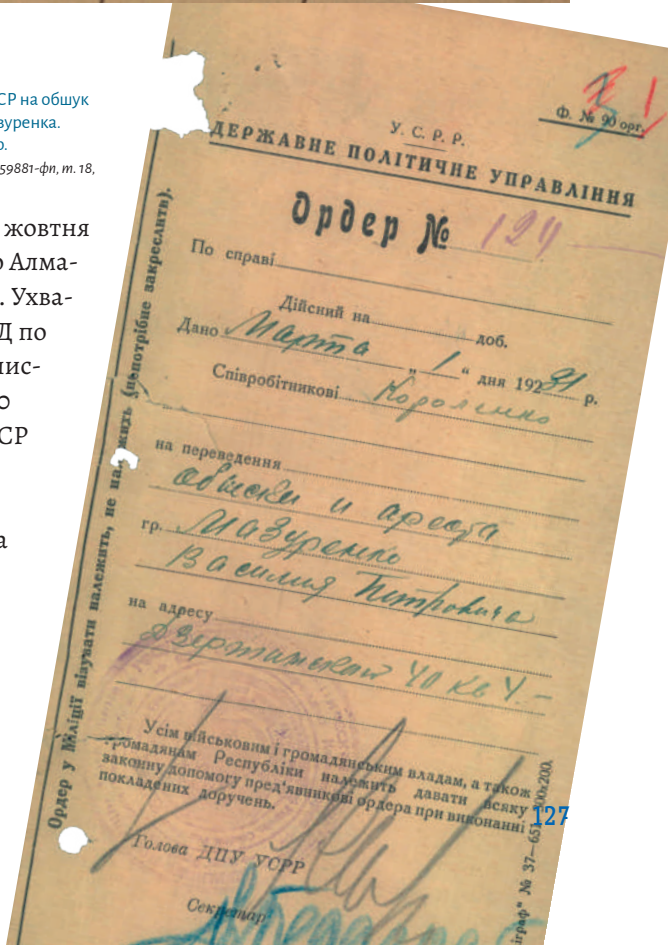 СР на обшук
зуренка.
р.
59881-фп, т. 18,
жовтня
о Алма-
. Ухва-
Д по
пис-
о
СР
а
У. С. Р. Р.
Ф. № 90 орг.
ДЕРЖАВНЕ ПОЛІТИЧНЕ УПРАВЛІННЯ
Ордер № 124
По справі
Дійсний на доб.
Дано Марта „ 1 “ дня 19231 р.
Співробітникові Короленко
на переведення
обыска и ареста
гр. Мазуренко
Василия Петровича
на адресу
Дзержинская 40 кв 4. –
Усім військовим і громадянським владам, а також
громадянам Республіки належить давати всяку
законну допомогу пред'явникові ордера при виконанні
покладених доручень.
Голова ДПУ УСРР
Секретар
Ордер у Міліції візувати належить, не належить (непотрібне закреслить).
127
№ 37—651 00х200.